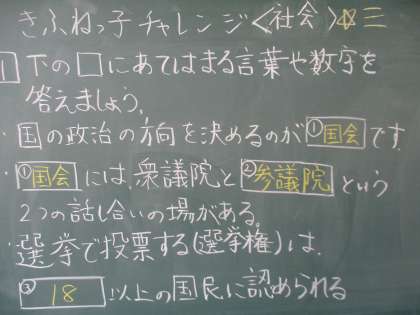 きふねっ子チャレンジ<社会>☆三
1 下の□にあてはまる言葉や数字を
答えましょう。
・国の政治の方向を決めるのが①国会です。
・①国会には、衆議院と②参議院という
2つの話し合いの場がある。
・選挙で投票する(選挙権)は、
③18以上の国民に認められる